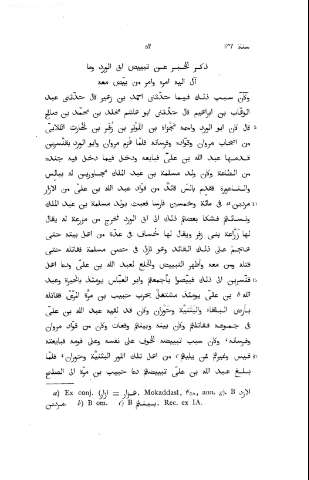 سنة ١٣٢ ٥٢
ذكر الخبر عن تبييض ابى الورد وما
آل اليه امره وامر من بيّض معه
وكان سبب ذلك فيما حدّثنى احمد بن زهير قال حدّثنى عبد
الوهّاب بن ابراهيم قال حدّثنى ابو هاشم مخلد بن محمد بن صالح
قال كان ابو الورد واسمه مجزأة بن الكوثر بن زفر بن الحارث الكلابىّ
من اصحاب مروان وقوّاده وفرسانه فلمّا هُزم مروان وابو الورد بقنّسرين
قدمها عبد الله بن علىّ فبايعه ودخل فيما دخل فيه جنده
من الطاعة وكان ولد مسلمة بن عبد الملك مجاورين له ببالس
والناعورة فقدم بالس قائد من قوّاد عبد الله بن علىّ من الازار
مردين a فى مائة وخمسين فارسا فبعث بولد مسلمة بن عبد الملك
ونسائهم فشكا بعضهم ذلك الى ابى الورد فخرج من مزرعة له يقال
لها زرّاعة بنى زفر ويقال لها خساف فى عدّة من اهل بيته حتى
هاجم على ذلك القائد وهو نازل فى حصن مسلمة فقاتله حتى
قتله ومن معه واظهر التبييض والخلع لعبد الله بن علىّ ودعا اهل
قنّسرين الى ذلك فبيّضوا بأجمعهم وابو العبّاس يومئذ بالحيرة وعبد
الله b بن علىّ يومئذ مشتغل بحرب حبيب بن مرّة المرّىّ فقاتله
بأرض البلقاء والبثنيّة وحوران وكان قد لقيه عبد الله بن علىّ
فى جموعه فقاتلهم وكان بينه وبينهم وقعات وكان من قوّاد مروان
وفرسانه وكان سبب تبييضه الخوف على نفسه وعلى قومه فبايعته
قيس وغيرهم ممّن يليهم c من اهل تلك الكور البثنيّة وحوران فلمّا
بلغ عبد الله بن علىّ تبييضهم دعا حبيب بن مرّة الى الصلح
a) Ex conj. (ازار = هزار, Mokaddasi, ann. g). B الازد
مردين. b) B om. c) B بينهم, Rec. ex IA.